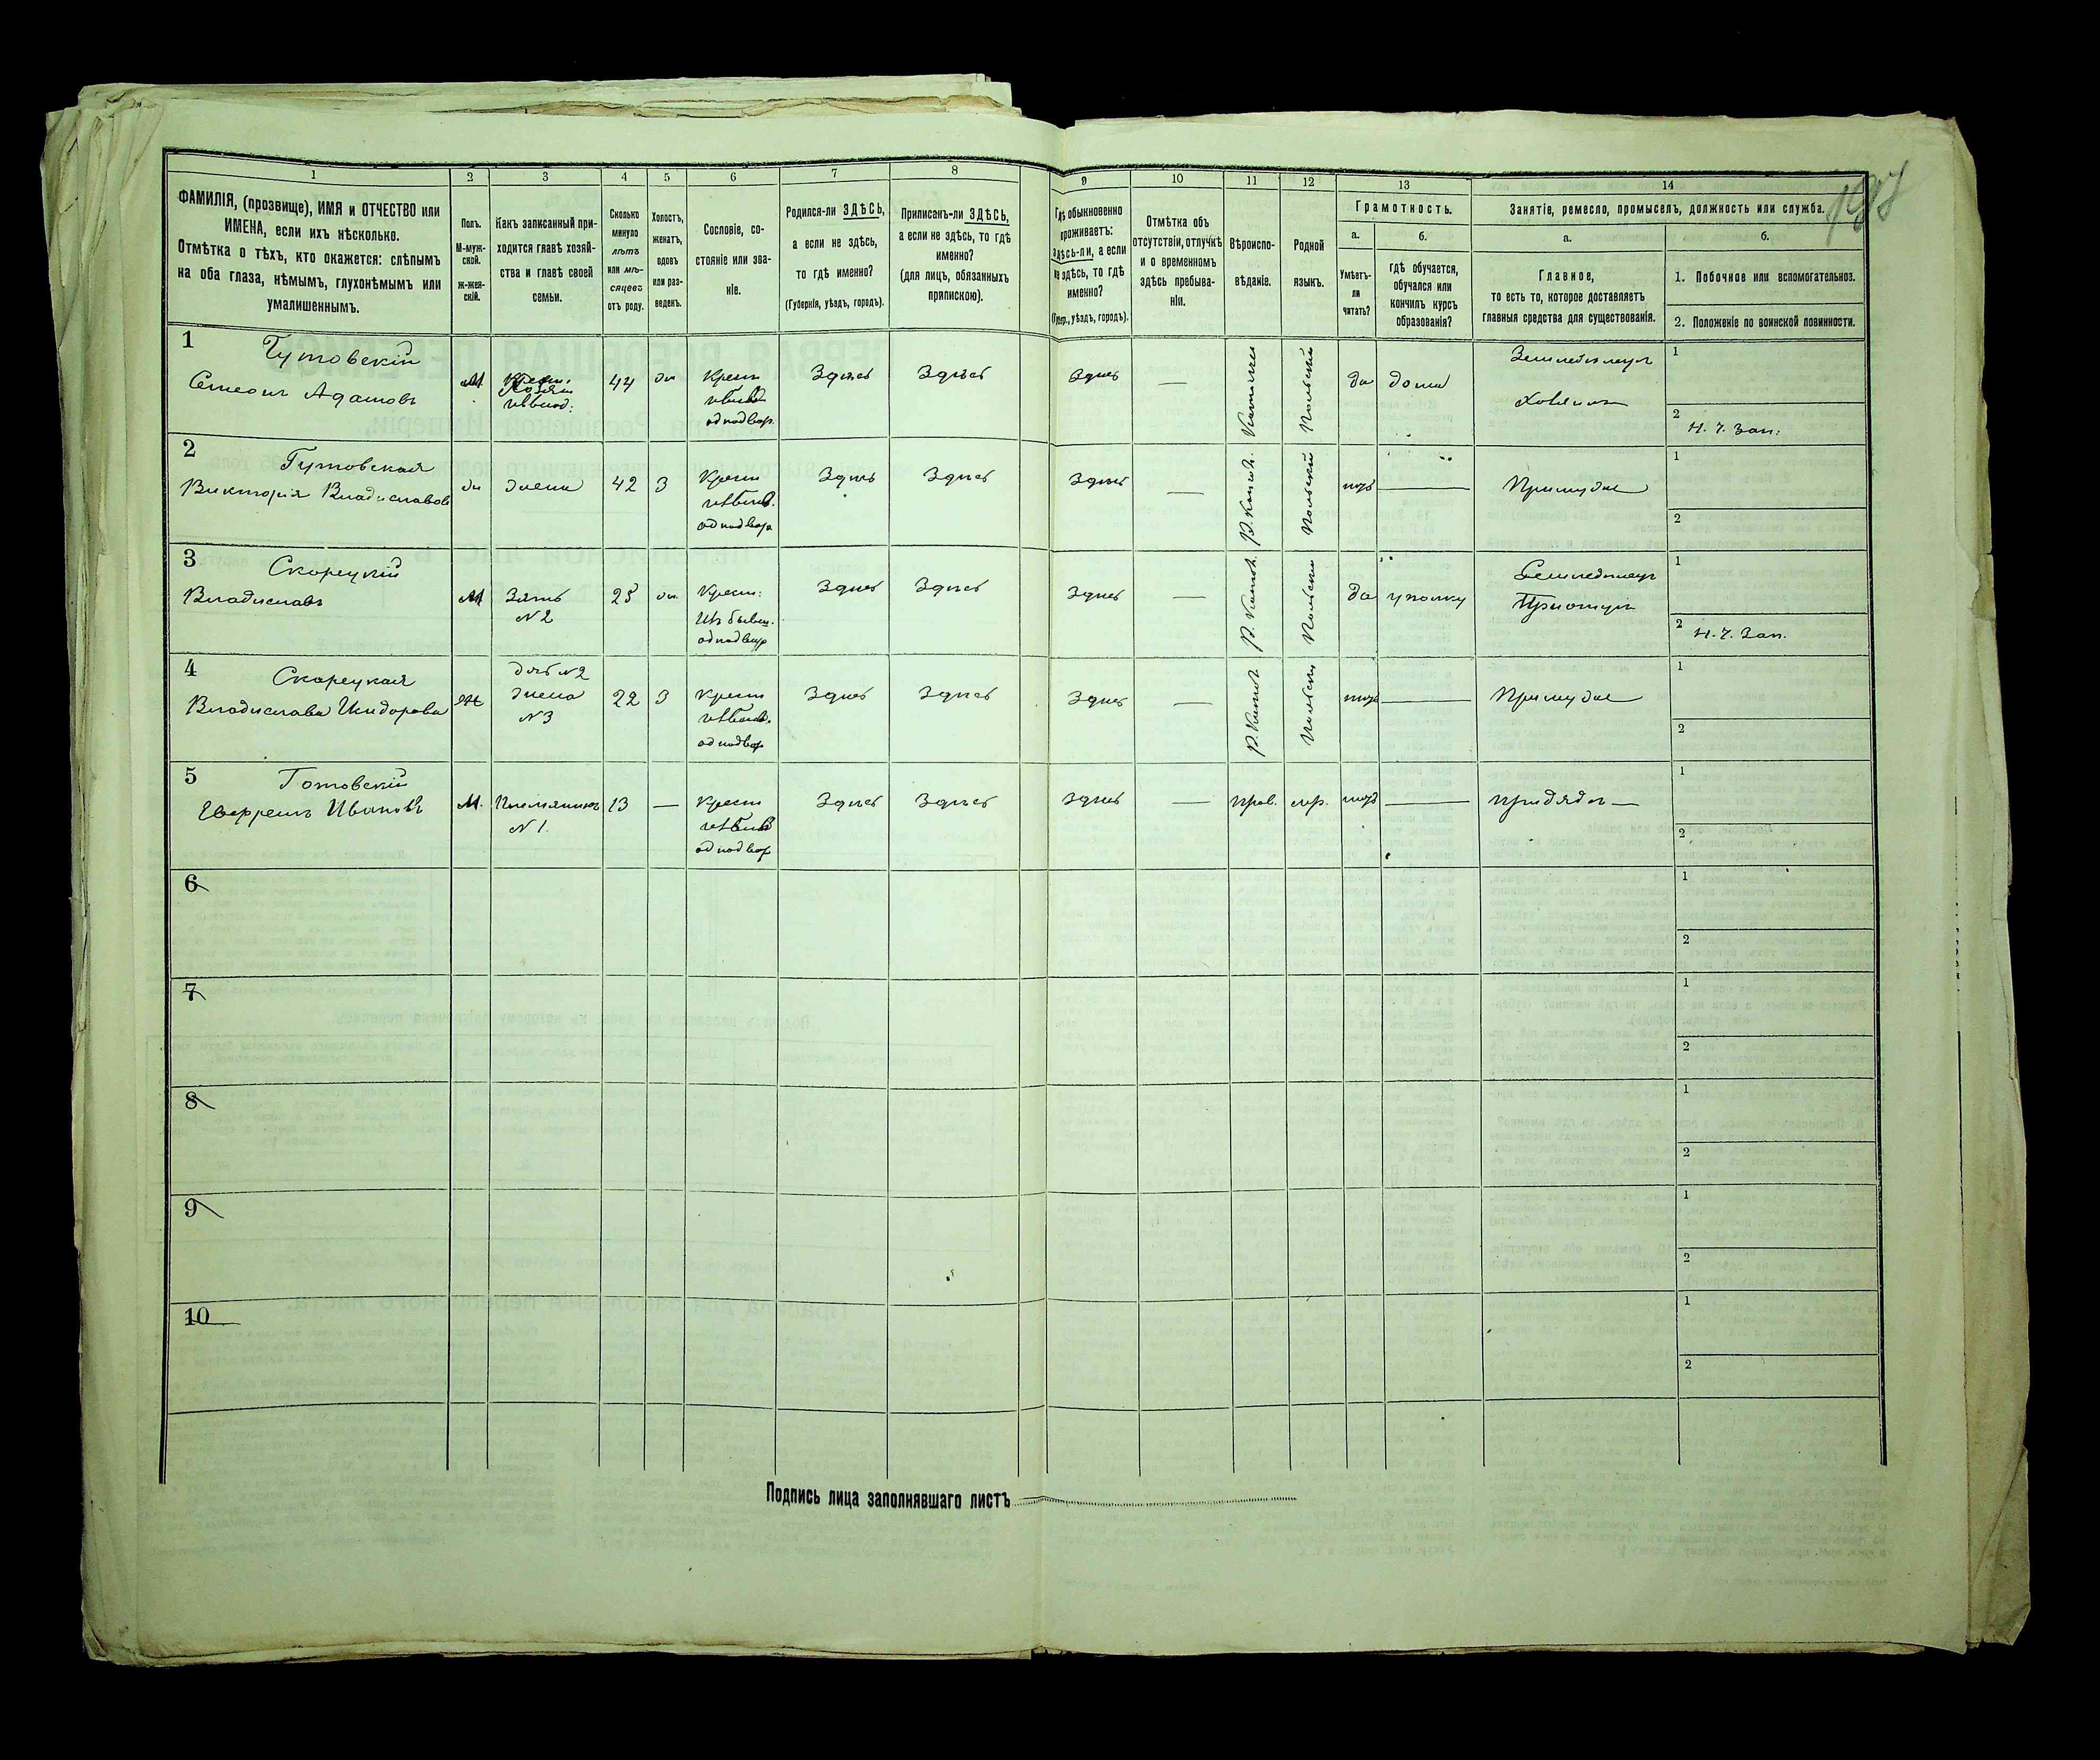 1 2 3 4 5 6 7 8 9 10 11 12 13 14
ФАМИЛІЯ, (прозвище), ИМЯ и ОТЧЕСТВО или
ИМЕНА, если ихъ нѣсколько.
Отмѣтка о тѣхъ, кто окажется: слѣпымъ
на оба глаза, нѣмымъ, глухонѣмымъ или
умалишеннымъ.
Полъ.
М-муж-
ской.
ж-жен-
скій.
Какъ записанный при-
ходится главѣ хозяй-
ства и главѣ своей
семьи.
Сколько
минуло
лѣтъ
или мѣ-
сяцевъ
отъ роду.
Холостъ,
женатъ,
вдовъ
или раз-
веденъ.
Сословіе, со-
стояніе или зва-
ніе.
Родился-ли ЗДѢСЬ,
а если не здѣсь,
то гдѣ именно?
(Губернія, уѣздъ, городъ).
Приписанъ-ли ЗДѢСЬ,
а если не здѣсь, то гдѣ
именно?
(для лицъ, обязанныхъ
припискою).
Гдѣ обыкновенно
проживаетъ:
здѣсь-ли, а если
не здѣсь, то гдѣ
именно?
(Губер., уѣздъ, городъ).
Отмѣтка объ
отсутствіи, отлучкѣ
и о временномъ
здѣсь пребыва-
ніи.
Вѣроиспо-
вѣданіе.
Родной
языкъ.
Грамотность.
а.
Умѣетъ-
ли
читать?
б.
гдѣ обучается,
обучался или
кончилъ курсъ
образованія?
Занятіе, ремесло, промыселъ, должность или служба.
а.
Главное,
то есть то, которое доставляетъ
главныя средства для существованія.
б.
1. Побочное или вспомогательное.
2. Положеніе по воинской повинности.
1
Гутовскій
Семеонъ Адамовъ
М
44
Крест
однодвор
Здѣсь
Здѣсь
Здѣсь
—
Польскій
да
дома
Земледѣлецъ
Хозяинъ
1
2
Н. Ч. Зап:
2
Гутовская
Викторія Владиславов
жена
42
З
Крест
однодвор
Здѣсь
Здѣсь
Здѣсь
—
Р. Катол.
Польскій
—
При мужѣ
1
2
3
Скорецкій
Владиславъ
М
Зять
№2
25
Крест:
Из бывш.
однодвор
Здѣсь
Здѣсь
Здѣсь
—
Р. Катол.
Польскій
да
Земледѣлецъ
1
2
Н. Ч. Зап.
4
Скорецкая
Владислава Исидорова
Ж
дчь №2
жена
№3
22
З
Крест
однодвор
Здѣсь
Здѣсь
Здѣсь
—
Р. Катол
Польскій
—
При мужѣ
1
2
5
Готовскій
Иванов
М.
Племянникъ
№ 1.
13
—
Крест
однодвор
Здѣсь
Здѣсь
Здѣсь
—
прав.
—
при дядѣ —
1
2
6
1
2
7
1
2
8
1
2
9
1
2
10
1
2
Подпись лица заполнявшаго листъ